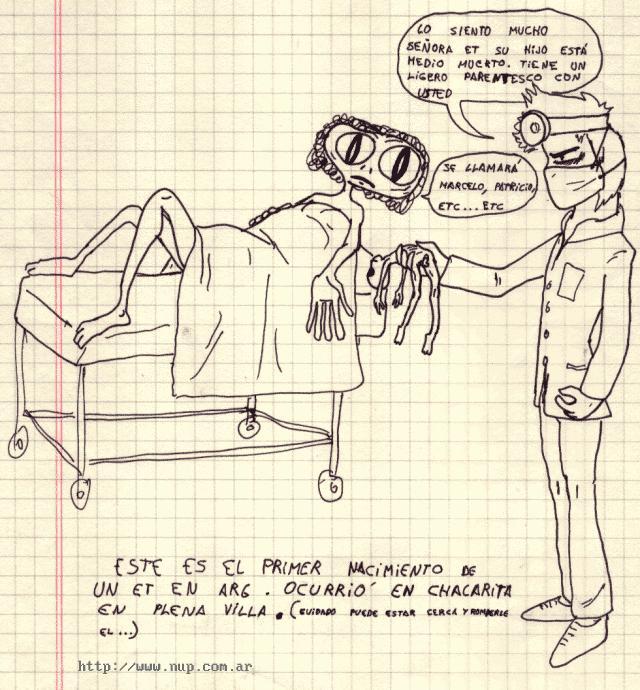 LO SIENTO MUCHO
SEÑORA ET SU HIJO ESTÁ
MEDIO MUERTO. TIENE UN
LIGERO PARENTESCO CON
USTED
SE LLAMARA
MARCELO, PATRICIO,
ETC...ETC
ESTE ES EL PRIMER NACIMIENTO DE
UN ET EN ARG. OCURRIÓ EN CHACARITA
EN PLENA VILLA. (CUIDADO PUEDE ESTAR CERCA Y ROMPERLE
EL...)
http://www.nup.com.ar